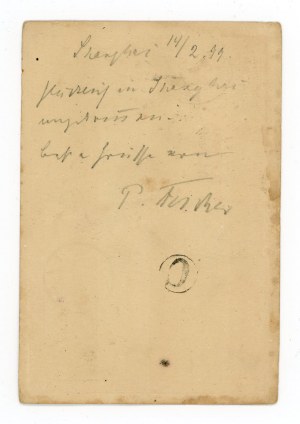 Shanghai 14/2.99
Glücklich in Shanghai
angekommen.
beste Grüsse von
P. Fischer
C